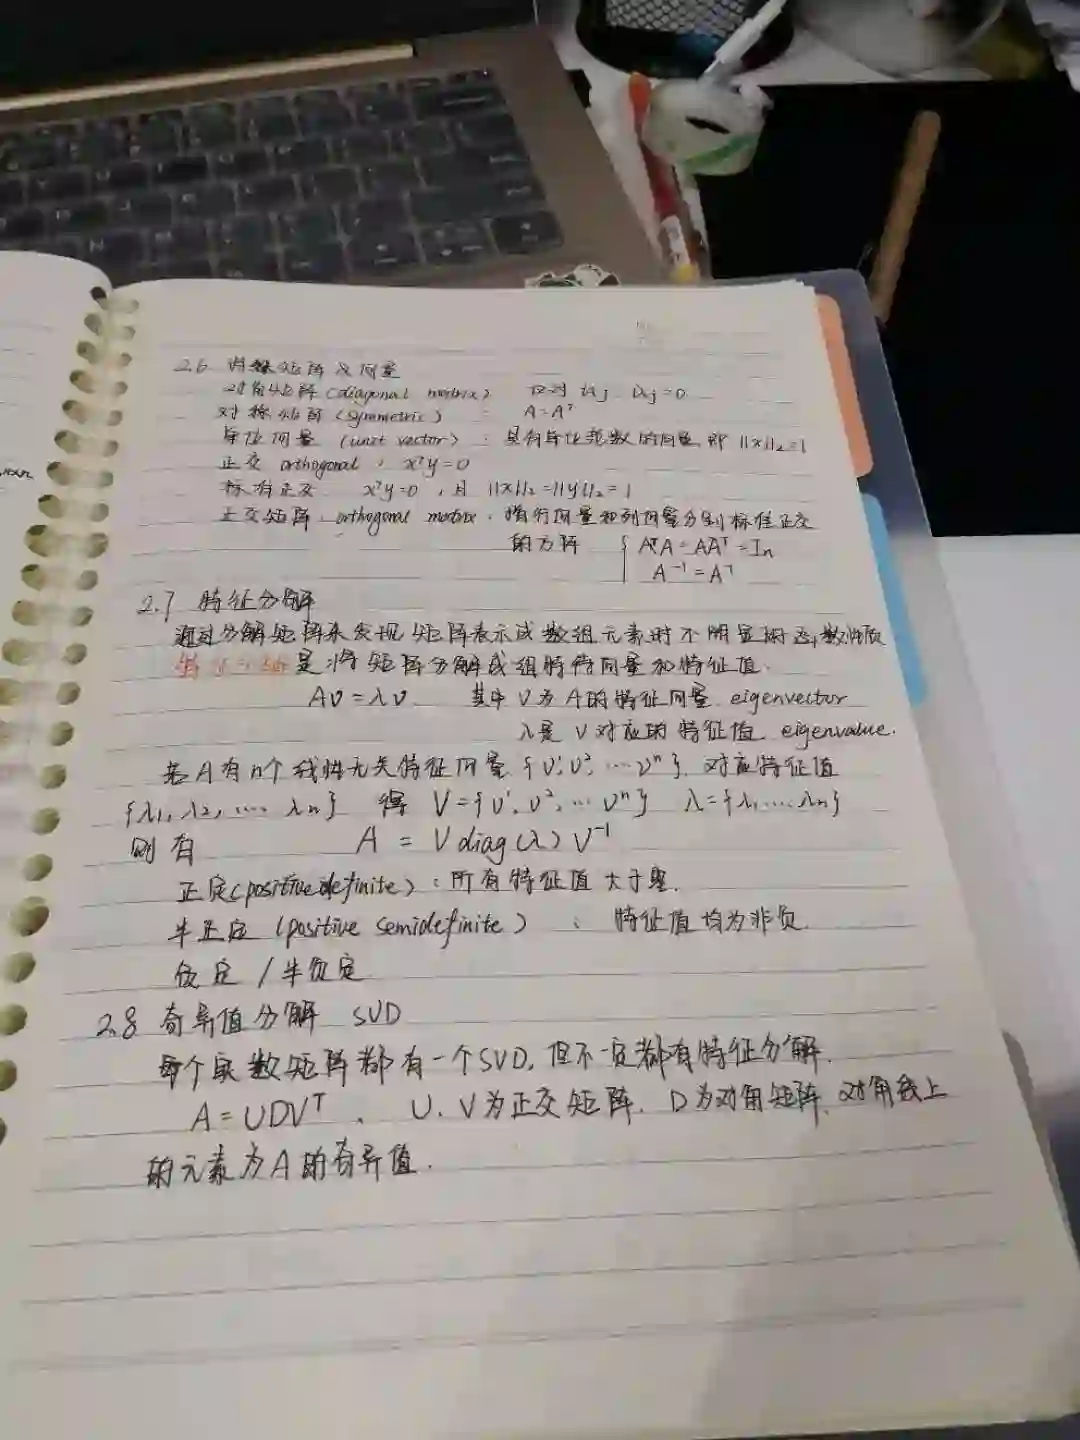 2.6 特殊矩阵及向量
对角矩阵 (diagonal matrix) i≠j, Di,j=0
对称矩阵 (symmetric) : A=Aᵀ
单位向量 (unit vector) : 具有单位范数的向量, 即 ||x||₂=1
正交 orthogonal , xᵀy=0
标准正交 xᵀy=0 , 且 ||x||₂=||y||₂=1
正交矩阵 orthogonal matrix . 指行向量和列向量分别标准正交
的方阵 { AᵀA=AAᵀ=In
A⁻¹=Aᵀ
2.7 特征分解
通过分解矩阵来发现矩阵表示成数组元素时不明显的函数性质
是将矩阵分解成组特征向量和特征值.
Av=λv 其中 v为 A的特征向量 eigenvector
λ是 v对应的特征值 eigenvalue.
若A有n个线性无关特征向量 {v¹,v²,…vⁿ}, 对应特征值
{λ1, λ2, … λn} 得 V={v¹, v², … vⁿ} λ={λ1,…λn}
则有 A = V diag(λ) V⁻¹
正定(positive definite) : 所有特征值大于零.
半正定 (positive semidefinite) : 特征值均为非负.
负定 / 半负定
2.8 奇异值分解 SVD
每个实数矩阵都有一个SVD, 但不一定都有特征分解.
A=UDVᵀ , U、V为正交矩阵, D为对角矩阵, 对角线上
的元素为A的奇异值.